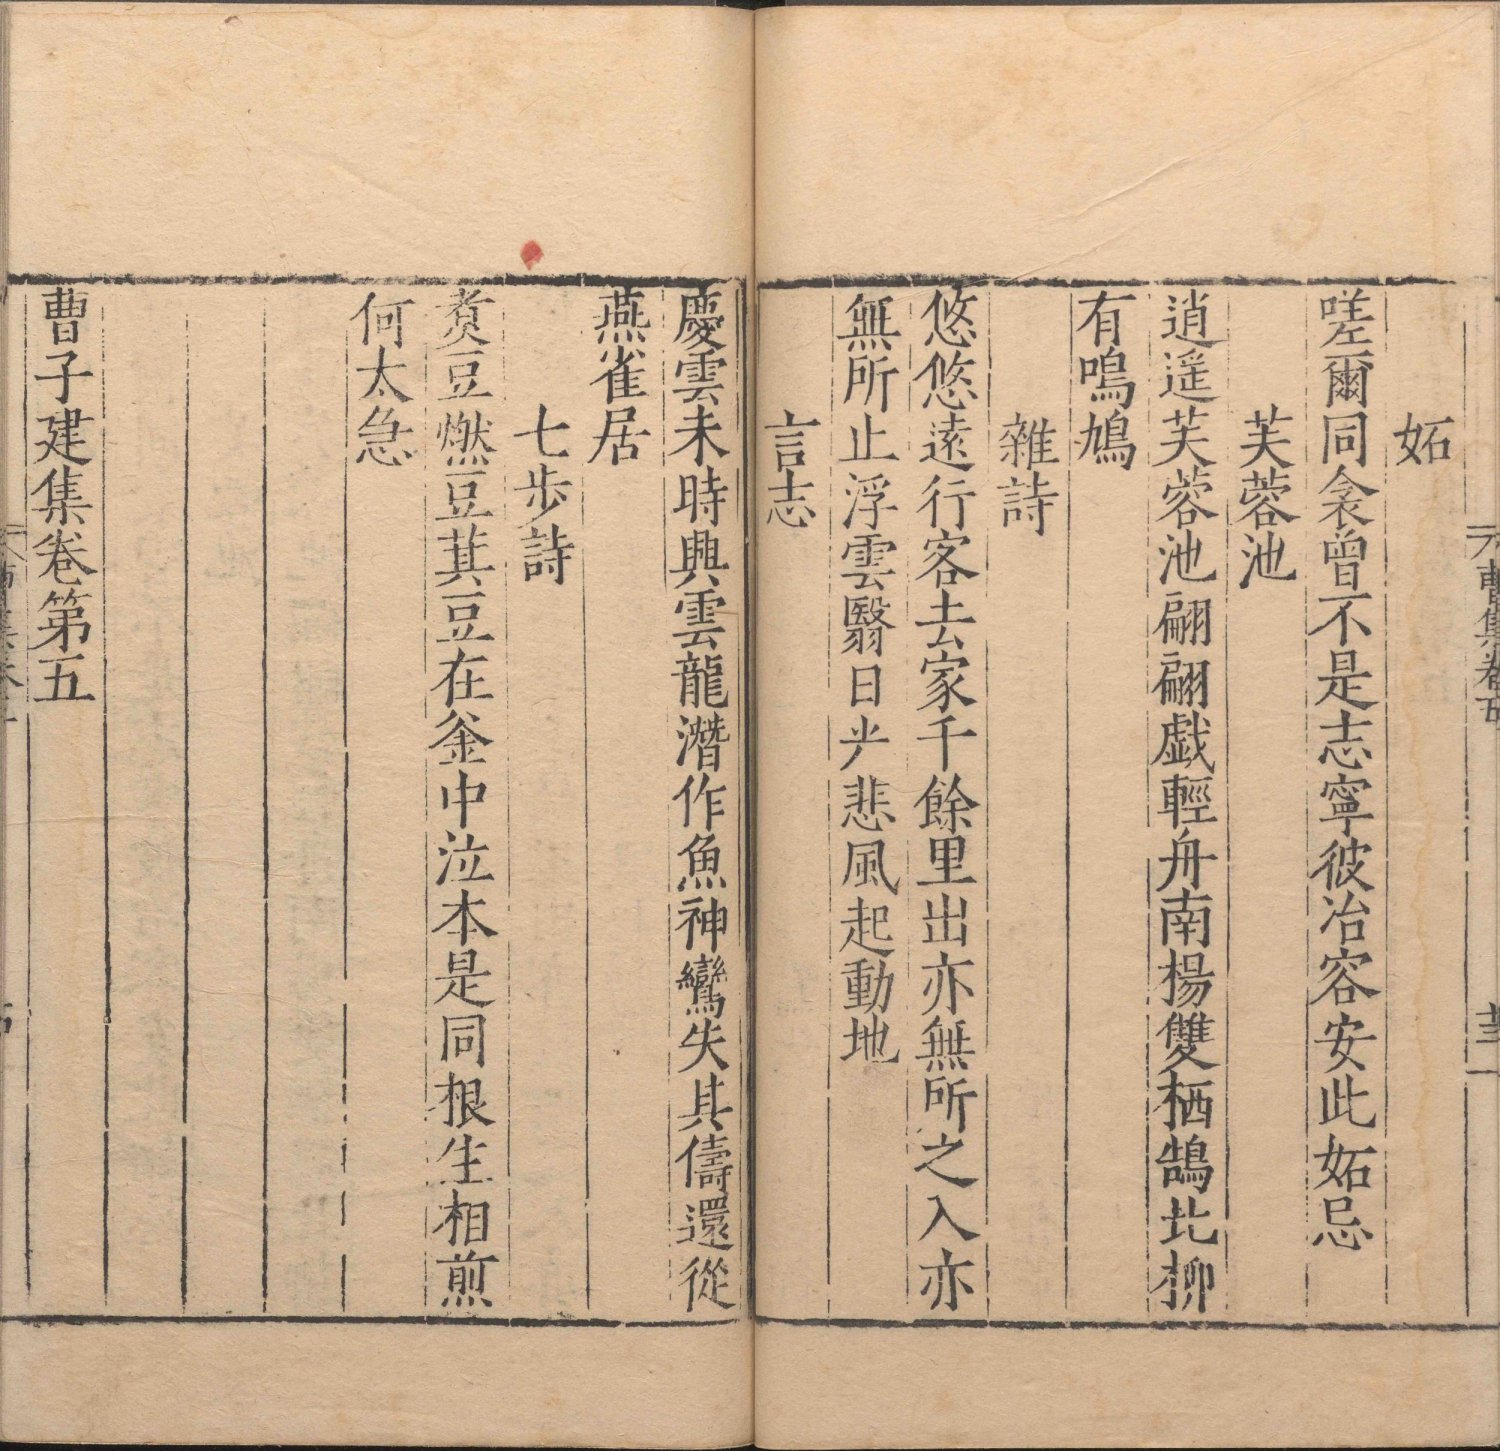 妬
嗟爾同衾曾不是志寧彼冶容安此妬忌
芙蓉池
逍遥芙蓉池翩翩戯輕舟南楊雙栖鵠北柳
有鳴鳩
雜詩
悠悠遠行客去家千餘里出亦無所之入亦
無所止浮雲翳日光悲風起動地
言志
慶雲未時興雲龍潛作魚神鸞失其儔還從
燕雀居
七步詩
煑豆燃豆萁豆在釜中泣本是同根生相煎
何太急
曹子建集卷第五